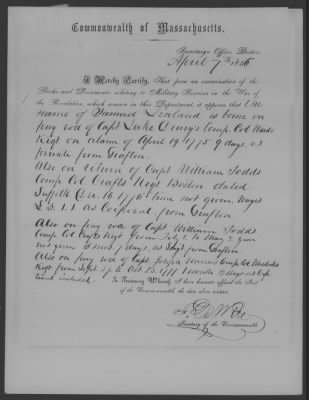 Commonwealth of Massachusetts.
Secretary's Office, Boston,
April 7th 1856
I Hereby Certify, That from an examination of the
Books and Documents relating to Military Services in the War of
the Revolution, which remain in this Department, it appears that the
name of Samuel is borne on
pay roll of Capt Luke Drury's Comp. Col Wards
Regt on alarm of April 19 1775 9 days as
private from Grafton.
Also on return of Capt William Todds
Comp Col Crafts Regt Boston dated
Suffolk Dec 16 1776 time not given, wages
£ 3. 1. 1 as Corporal from Grafton
Also on pay roll of Capt. William Todds
Comp Col Crafts Regt from Feby 1. to May 7. year
not given 3 mos 7 days, as from Grafton
Also on pay roll of Capt. Joseph Comp. Col
Regt from Sept. to Oct 1 month days
travel included.
In Testimony Whereof, I have hereunto affixed the Seal
of the Commonwealth, the date above written.
Secretary of the Commonwealth.